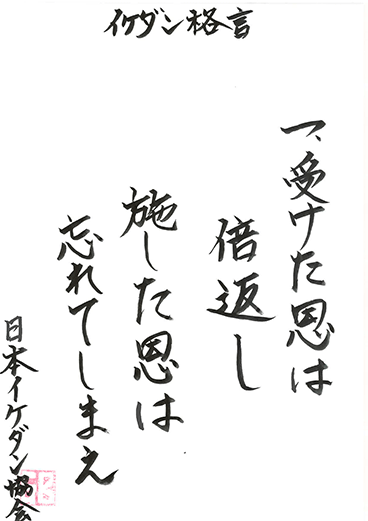 イケダン格言
一、受けた恩は
倍返し
施した恩は
忘れてしまえ
日本イケダン協会